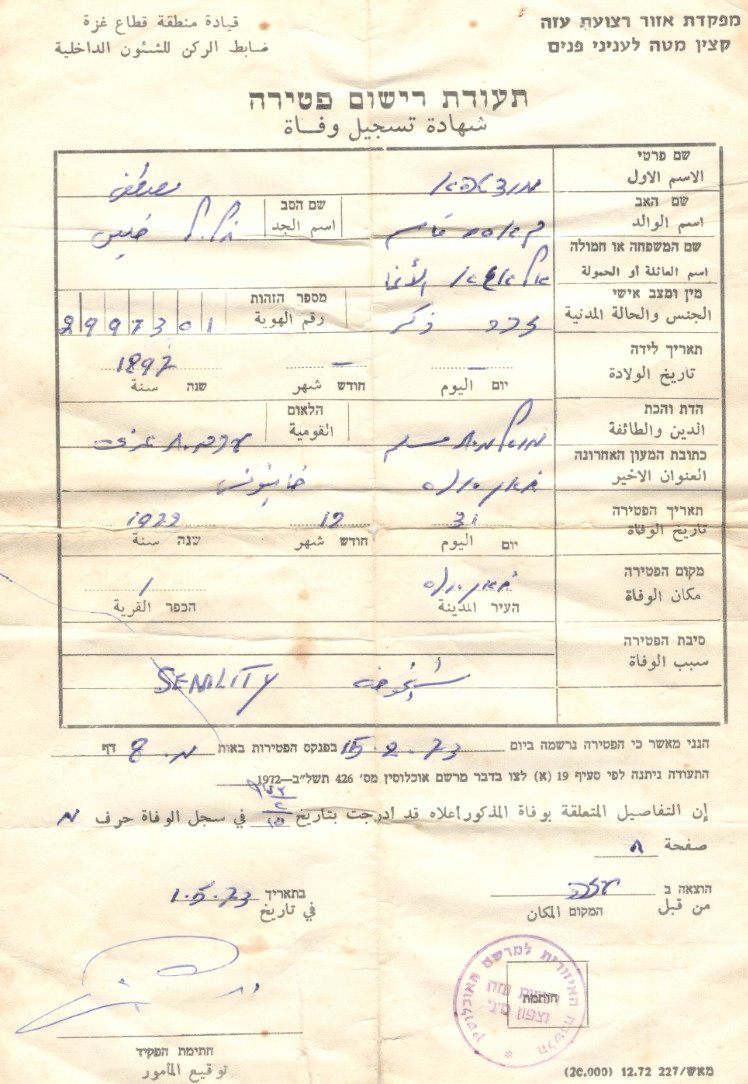 מפקדת אזור רצועת עזה
קצין מטה לעניני פנים
قيادة منطقة قطاع غزة
ضابط الركن للشئون الداخلية
תעודת רישום פטירה
شهادة تسجيل وفاة
שם פרטי
الاسم الاول
מוצטפא
مصطفى
שם האב
اسم الوالد
קאסם قاسم
שם הסב
اسم الجد
שם המשפחה או חמולה
اسم العائلة أو الحمولة
אל אגא الأغا
מין ומצב אישי
الجنس والحالة المدنية
זכר ذكر
מספר הזהות
رقم الهوية
2997301
תאריך לידה
تاريخ الولادة
יום اليوم —
חודש شهر —
שנה سنة 1897
הדת והכת
الدين والطائفة
מוסלמית مسلم
הלאום
القومية
ערבית عربي
כתובת המעון האחרונה
العنوان الاخير
חאן יונס خانيونس
תאריך הפטירה
تاريخ الوفاة
יום اليوم 31
חודש شهر 12
שנה سنة 1922
מקום הפטירה
مكان الوفاة
חאן יונס
העיר المدينة
/
הכפר القرية
סיבת הפטירה
سبب الوفاة
شيخوخة SENILITY
הנני מאשר כי הפטירה נרשמה ביום 15.2.73 בפנקס הפטירות באות מ. 8 דף
התעודה ניתנה לפי סעיף 19 (א) לצו בדבר מרשם אוכלוסין מס' 426 תשל"ב–1972
إن التفاصيل المتعلقة بوفاة المذكور أعلاه قد أدرجت بتاريخ ١٥/٢/٧٣ في سجل الوفاة حرف מ
صفحة ٨
הוצאה ב עזה
من قبل
המקום المكان
בתאריך 1.5.73
في تاريخ
הלשכה האיזורית למרשם האוכלוסין
עזה
וצפון סיני
חותמת
חתימת הפקיד
توقيع المأمور
מאש/227 12.72 (20.000)